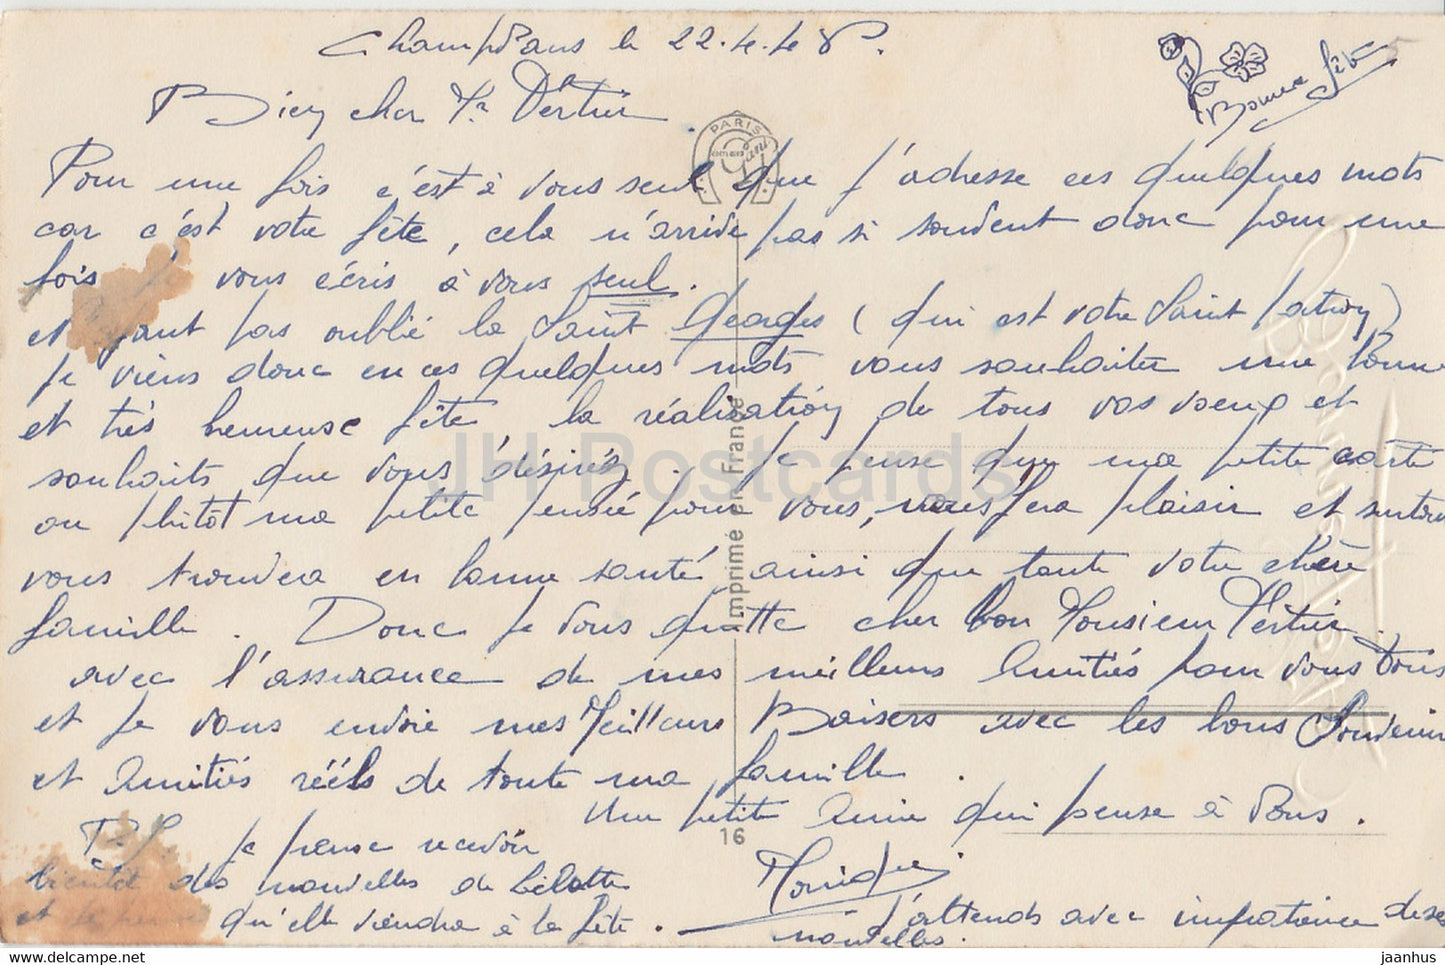 Champdans le 22.4.48.
Bonne fête
Bien cher Mr Vertui
PARIS
Pour une fois c'est à vous seul que j'adresse ces quelques mots
car c'est votre fête, cela n'arrive pas si souvent donc pour une
fois je vous écris à vous seul.
et ayant pas oublié la Saint Georges (qui est votre Saint Patron)
Je viens donc en ces quelques mots vous souhaiter une bonne
et très heureuse fête la réalisation de tous vos voeux et
souhaits que vous désiréz. Je pense que ma petite carte
ou plutôt ma petite pensée pour vous, vous fera plaisir et surtout
vous trouvera en bonne santé ainsi que toute votre chère
famille. Donc je vous quitte cher bon Monsieur Vertui.
avec l'assurance de mes meilleurs Amitiés pour vous Tous
et je vous envoie mes Meilleurs Baisers avec les bons Souvenirs
et Amitiés réels de toute ma famille.
Une petite Amie qui pense à Vous.
P.S. Je pense recevoir
bientôt des nouvelles de Lilette
et je pense qu'elle viendra à la fête.
Monique.
J'attends avec impatience de ses
nouvelles.
Imprimé en France
16
JH Postcards
hippostcard.com
jaanhus